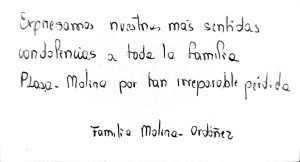 Expresamos nuestras más sentidas
condolencias a toda la familia
Plaza-Molina por tan irreparable pérdida
Familia Molina-Ordóñez